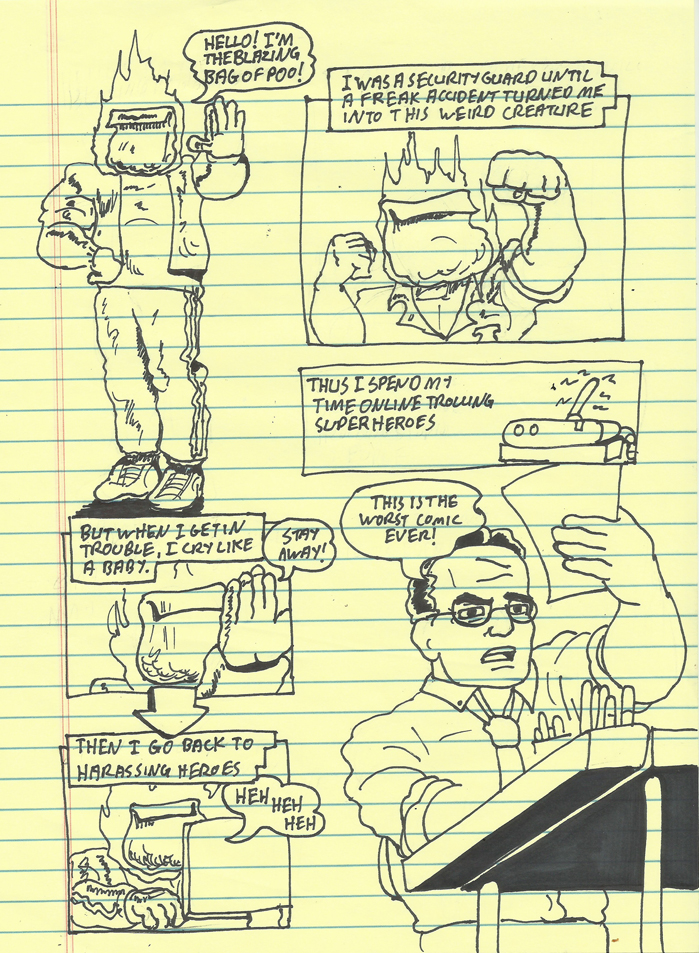 HELLO! I'M
THE BLAZING
BAG OF POO!
I WAS A SECURITY GUARD UNTIL
A FREAK ACCIDENT TURNED ME
INTO THIS WEIRD CREATURE
THUS I SPEND MY
TIME ONLINE TROLLING
SUPERHEROES
BUT WHEN I GET IN
TROUBLE, I CRY LIKE
A BABY.
STAY
AWAY!
THEN I GO BACK TO
HARASSING HEROES
HEH
HEH
HEH
THIS IS THE
WORST COMIC
EVER!